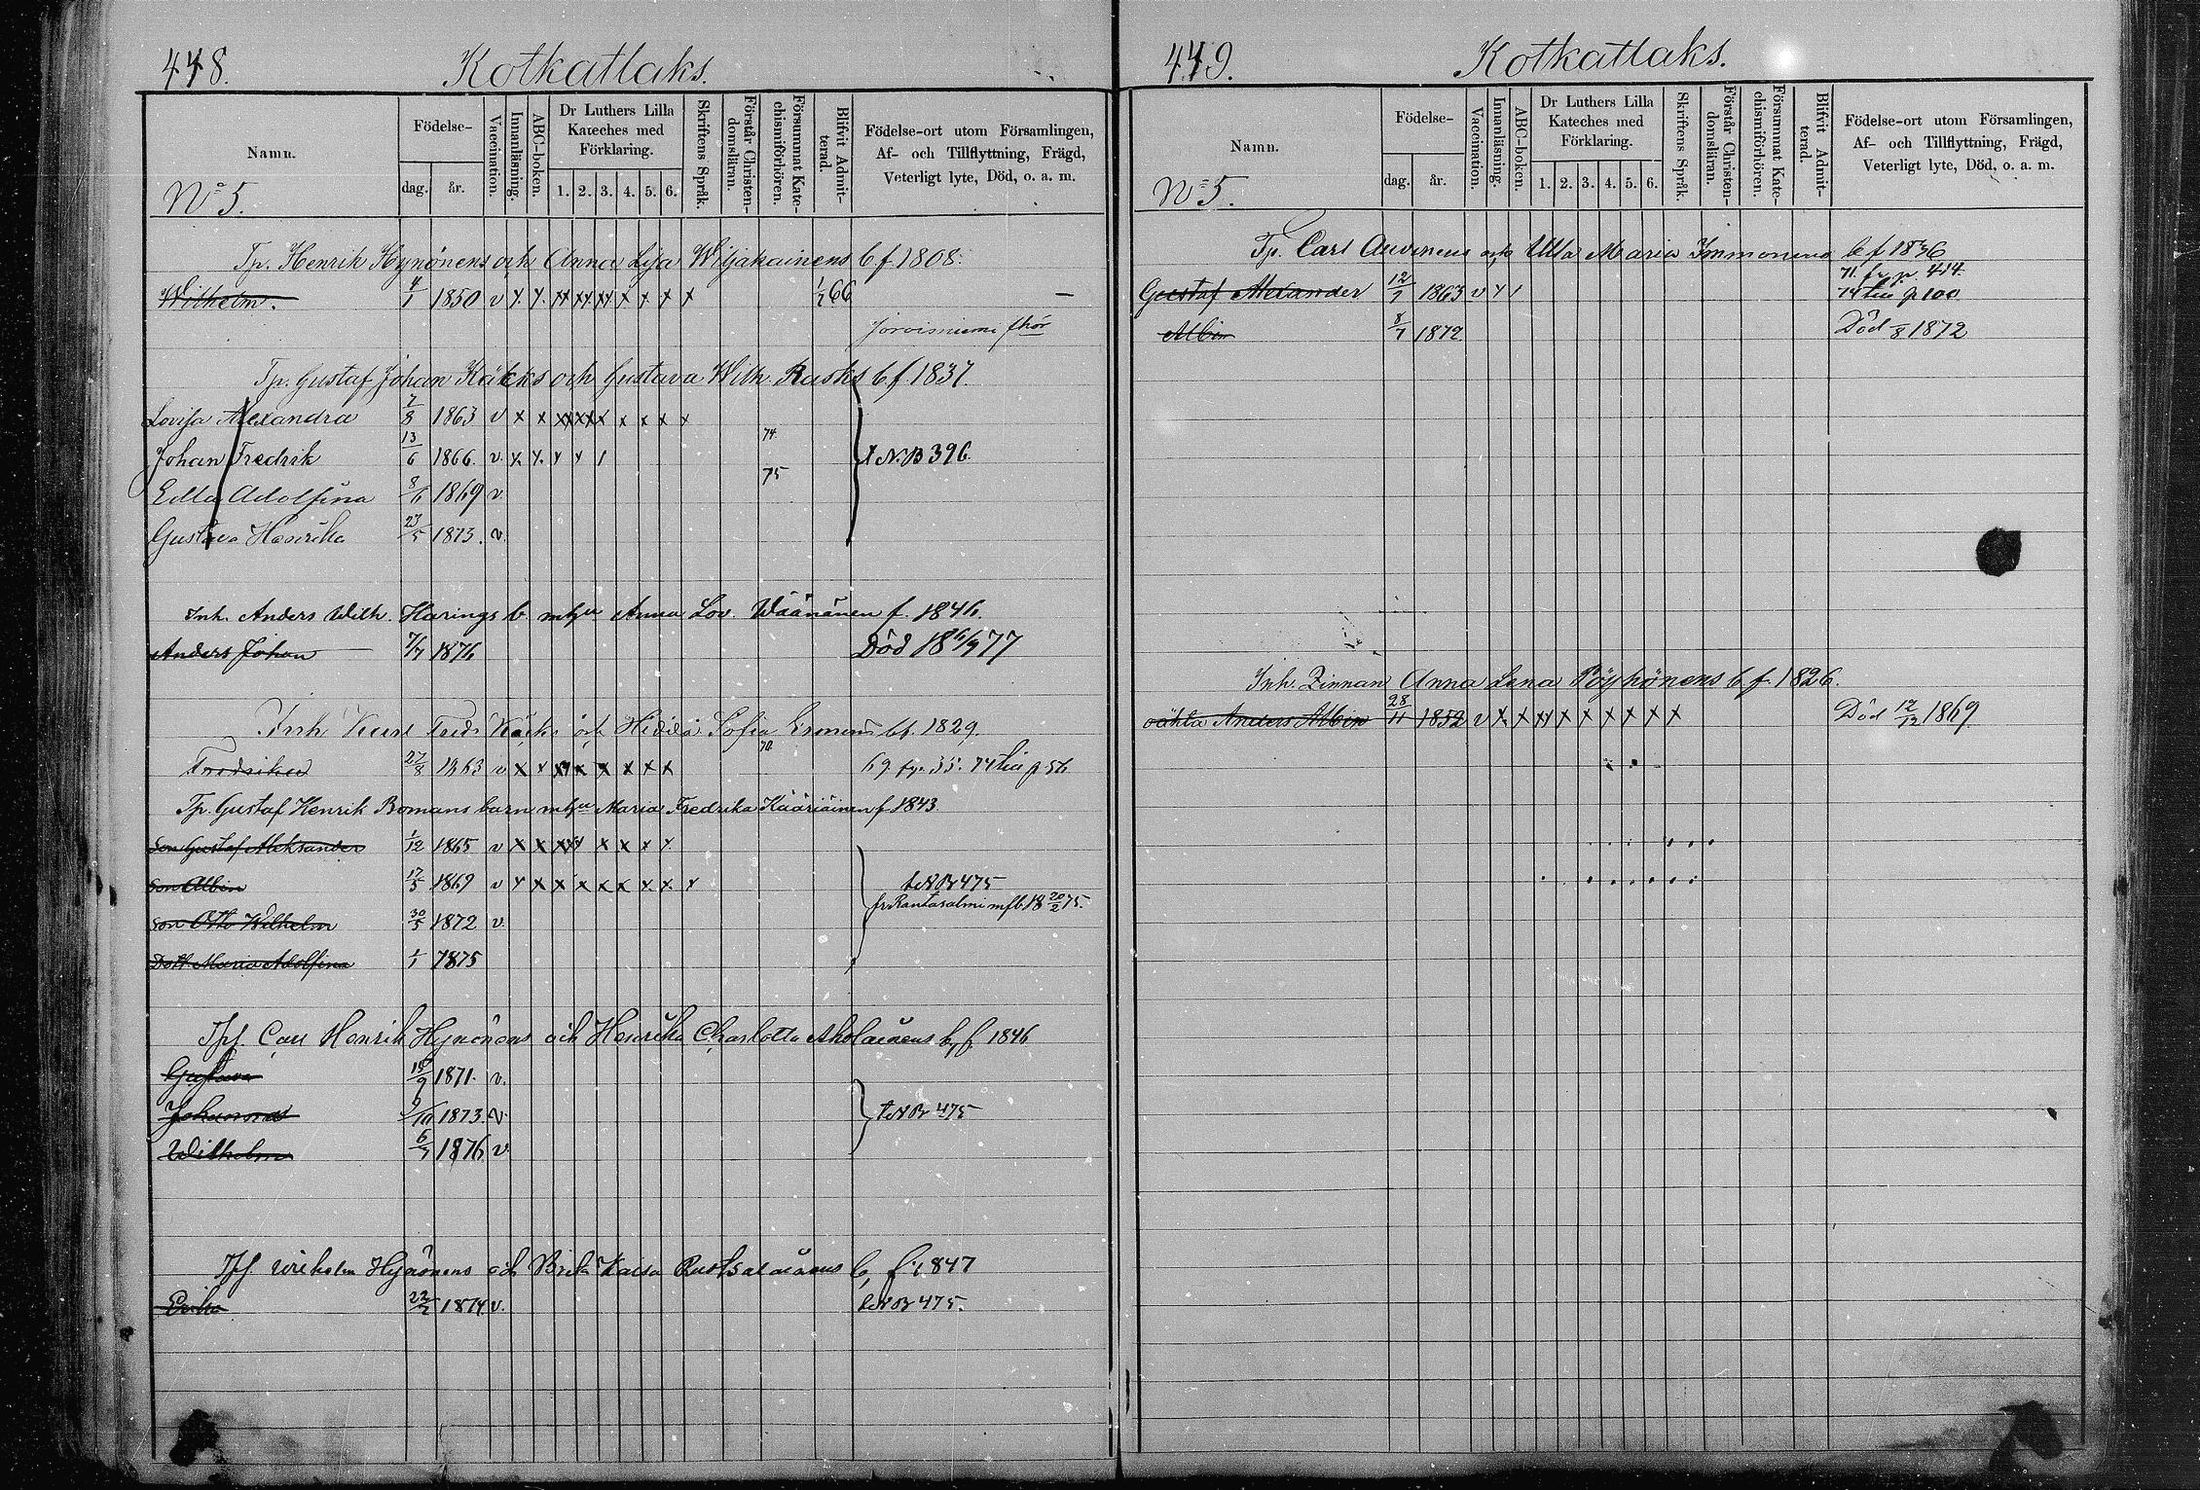 478.
Kotkatlaks.
Namn.
Födelse-
dag.
år.
Vaccination.
Innanläsning.
ABC-boken.
Dr Luthers Lilla
Kateches med
Förklaring.
1. 2. 3. 4. 5. 6.
Skriftens Språk.
Förstår Christen-
domsläran.
Försummat Kate-
chismiförhören.
Blifvit Admit-
terad.
Födelse-ort utom Församlingen,
Af- och Tillflyttning, Frägd,
Veterligt lyte, Död, o. a. m.
No 5.
Tp. Henrik Hynönens och Anna Lisa Wiljakainens b f 1808.
Wilhelm. 4/1 1850 v x x xx xx xx x x x x 1/7 66 —
Tp. Gustaf Johan Käcks och Gustava Wilh. Rusks b f. 1837.
Lovisa Alexandra 7/8 1863 v x x xx xx x x x x x
74
Johan Fredrik 13/6 1866. v. x x x x 1 t N.B 396.
75
Edla Adolfina 8/6 1869 v.
Gustava Henrika 23/5 1873. v.
Inh. Anders Wilh. Harings b. mhu Anna Lov. Wäänänen f. 1846.
Anders Johan 7/7 1876 Död 18 6/9 77
Inh Karl Fredr Käcks och Sofia b f. 1829.
70
Fredrika 27/8 1863 v x x xx x x x x x 69 fr. 35. 74 till p 56
Tp. Gustaf Henrik Romans barn mhu Maria Fredrika Kääriäinen f 1843.
Son Gustaf Aleksander 1/12 1865 v x x xx x x x x
Son Albin 17/5 1869 v x x x x x x x x x t N Br 475
fr Rantasalmi mfb 18 20/2 75.
Son Otto Wilhelm 30/5 1872 v.
Dott Maria Adolfina 1/1 1875
Tpf. Carl Henrik Hynönens och Henrika Charlotta Aholainens b, f 1846
Gustava 18/9 1871. v.
Johannes 9/10 1873. v. t N Br 475
Wilhelm 6/7 1876 v.
Tpf Wilhelm Hynönens och Brita Kaisa b, f. 1847
Erika 22/2 1874 v. t N Br 475.
479.
Kotkatlaks.
Namn.
Födelse-
dag.
år.
Vaccination.
Innanläsning.
ABC-boken.
Dr Luthers Lilla
Kateches med
Förklaring.
1. 2. 3. 4. 5. 6.
Skriftens Språk.
Förstår Christen-
domsläran.
Försummat Kate-
chismiförhören.
Blifvit Admit-
terad.
Födelse-ort utom Församlingen,
Af- och Tillflyttning, Frägd,
Veterligt lyte, Död, o. a. m.
No 5.
Tp. Carl Auvinens och Ulla Maria Immonens b f 1836
71. fr p. 414.
Gustaf Alexander 12/7 1863 v x 1 74 till p 100
Albin 8/7 1872 Död 1872
Inh. Enkan Anna Lena Pöyhönens b f. 1826.
oäkta Anders Albin 28/11 1852 v x x x x x x x x x Död 12/12 1869